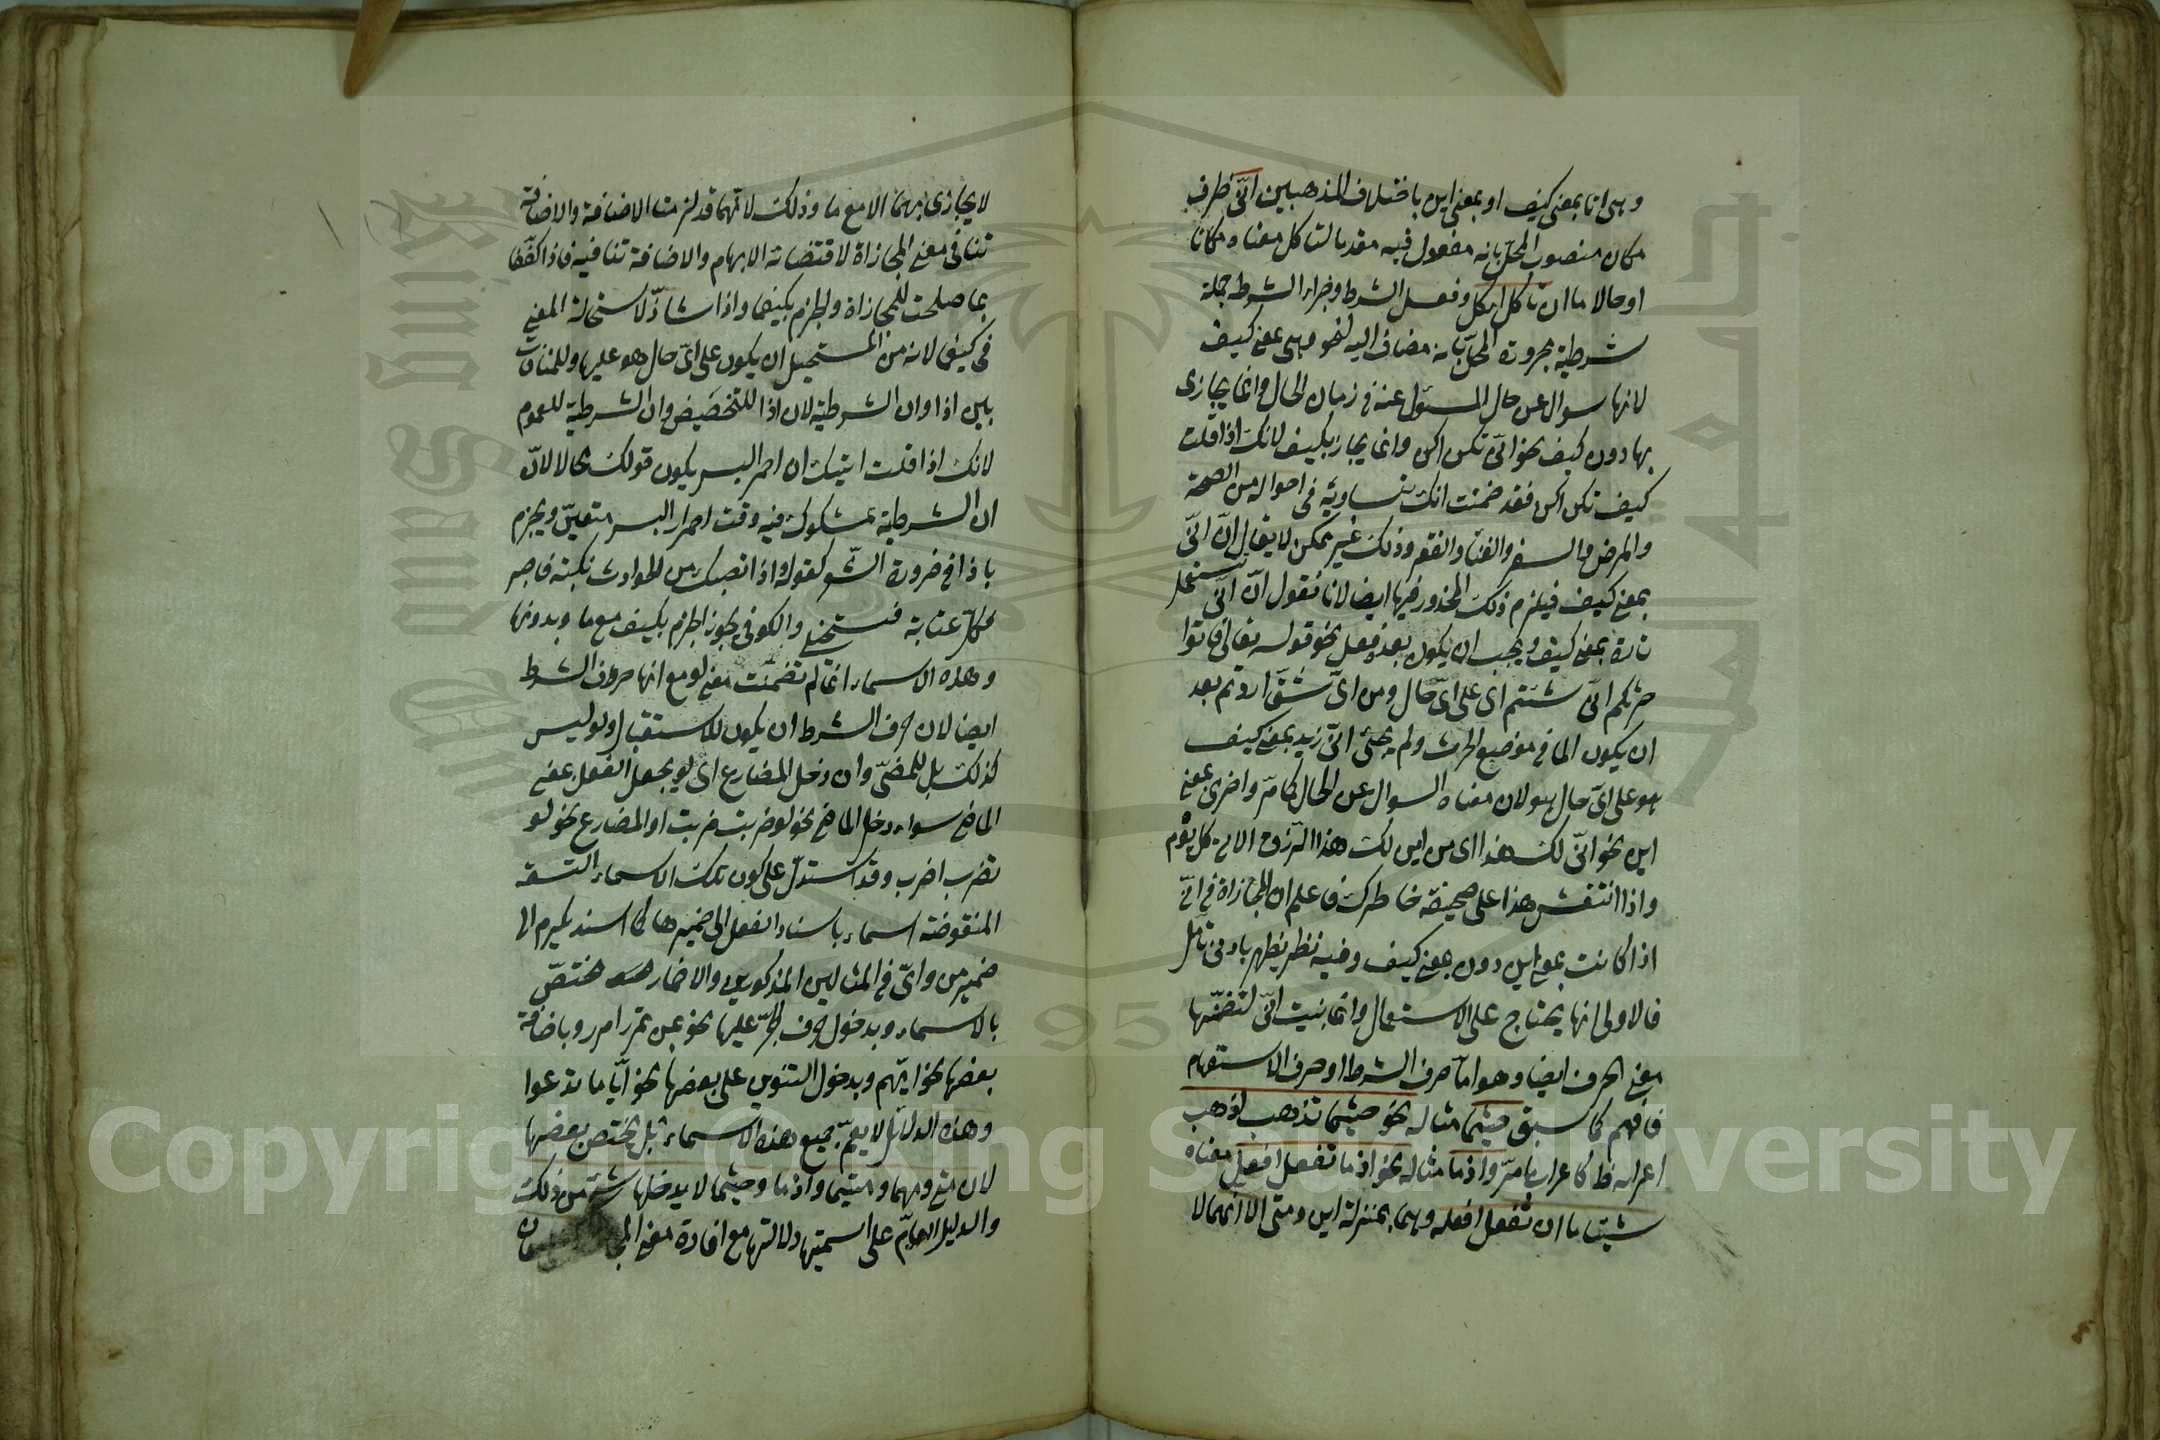 وهى اما بمعنى كيف او بمعنى اين باختلاف المذهبين انّى ظرف
مكان منصوب المحلّ بانه مفعول فيه مقدما لتاكل معناه مكانا
او حالا ما ان تأكل اكل وفعل الشرط وجزاء الشرط جملة
شرطية مجرورة المحلّ بانه مضاف اليه لنحو وهى بمعنى كيف
لانها سوال عن حال المسئول عنه فى زمان الحال وانما يجازى
بها دون كيف نحو انّى تكن اكن وانما يجاز بكيف لانك اذا قلت
كيف تكن اكن فقد ضمنت انك تساويه فى احواله من الصحة
والمرض والسفر والغنا والفقر وذلك غير ممكن لا يقال انّ انّى
بمعنى كيف فيلزم ذلك المحذور فيها ايضا لانا نقول انّ انّى تستعمل
تارة بمعنى كيف ويجب ان يكون بعده فعل نحو قوله تعالى فاتوا
حرثكم انّى شئتم اى على اىّ حال ومن اىّ شقّ اردتم بعد
ان يكون الما فى موضع الحرث ولم يجئ انّى زيد بمعنى كيف
هو على اىّ حال هو لان معناه السوال عن الحال كما مرّ واخرى بمعنى
اين نحو انّى لك هذا اى من اين لك هذا الرّزق الاتى كل يوم
واذا انتقش هذا على صحيفة خاطرك فاعلم ان المجازاة فى انّى
اذا كانت بمعنى اين دون بمعنى كيف وفيه نظر يظهر بادنى تأمّل
فالاولى انها يحتاج على الاستعمال وانما بنيت انّى لتضمّنها
معنى الحرف ايضا وهو امّا حرف الشرط او حرف الاستفهام
فافهم كما سبق حيثما مثاله نحو حيثما تذهب اذهب
اعرابه ظ كاعراب ما مرّ واذما مثاله نحو اذما تفعل افعل معناه
شيئا ما ان تفعل افعله وهما بمنزلة اين ومتى الا انّهما لا
لا يجازى بهما الا مع ما وذلك لانّهما قد لزمتا الاضافة والاضافة
تنافى معنى المجازاة لاقتضائه الابهام والاضافة تنافيه فاذا كفّتا
بما صلحتا للمجازاة والجزم بكيفما واذا شاذّ لاستحالة المعنى
فى كيفما لانه من المستحيل ان يكون على اىّ حال هو عليها وللمنافات
بين اذا وان الشرطية لان اذا للتخصيص وان الشرطيّة للعموم
لانك اذا قلت اتيتك ان احمر البسر يكون قولك محالا لانّ
ان الشرطية بمشكوك فيه وقت احمرار البسر متعيّن ويجزم
باذا فى ضرورة الشّعر كقوله واذا تصبك من الحوادث نكبة فاصبر
فكلّ غيابة فستنجلى والكوفى يجوز الجزم بكيف مع ما وبدونها
وهذه الاسماء انما لم تضمّنت معنى لو مع انها حرف الشرط
ايضا لان حرف الشرط ان يكون للاستقبال ولو ليس
كذلك بل للمضىّ وان دخل المضارع اى لو يجعل الفعل بمعنى
الماضى سواء دخل الماضى نحو لو ضربت ضربت او المضارع نحو لو
تضرب اضرب وقد استدلّ على كون تلك الاسماء التسعة
المنقوضة اسماء باسناد الفعل الى ضميرها كما اسند يكرم الى
ضمير من واىّ فى المثالين المذكورين والاضمار مختصّ
بالاسماء وبدخول حرف الجرّ عليها نحو بمن تمرر امرر وباضافة
بعضها نحو ايّهم وبدخول التنوين على بعضها نحو ايّا ما تدعوا
وهذه الدلائل لا يعمّ جميع هذه الاسماء بل يختص بعضها
لان متى ومهما وحيثما واذما وحيثما لا يدخلها شئ من ذلك
والدليل العامّ على اسميّتها دلالتها مع افادة معنى